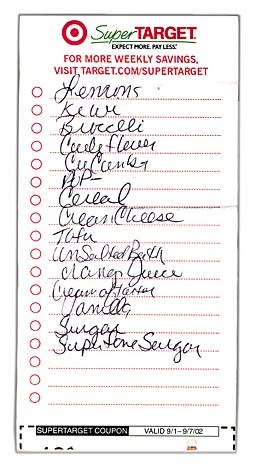 SuperTARGET
EXPECT MORE. PAY LESS.
FOR MORE WEEKLY SAVINGS,
VISIT TARGET.COM/SUPERTARGET
Lemons
Kewi
Broccelli
Caulaflower
CuCumber
AP-
Cereal
Cream Cheese
Tofu
UnSalted Butter
Orange Juice
Cream of Tartar
Vanilla
Sugar
Superfine Seugar
SUPERTARGET COUPON VALID 9/1–9/7/02